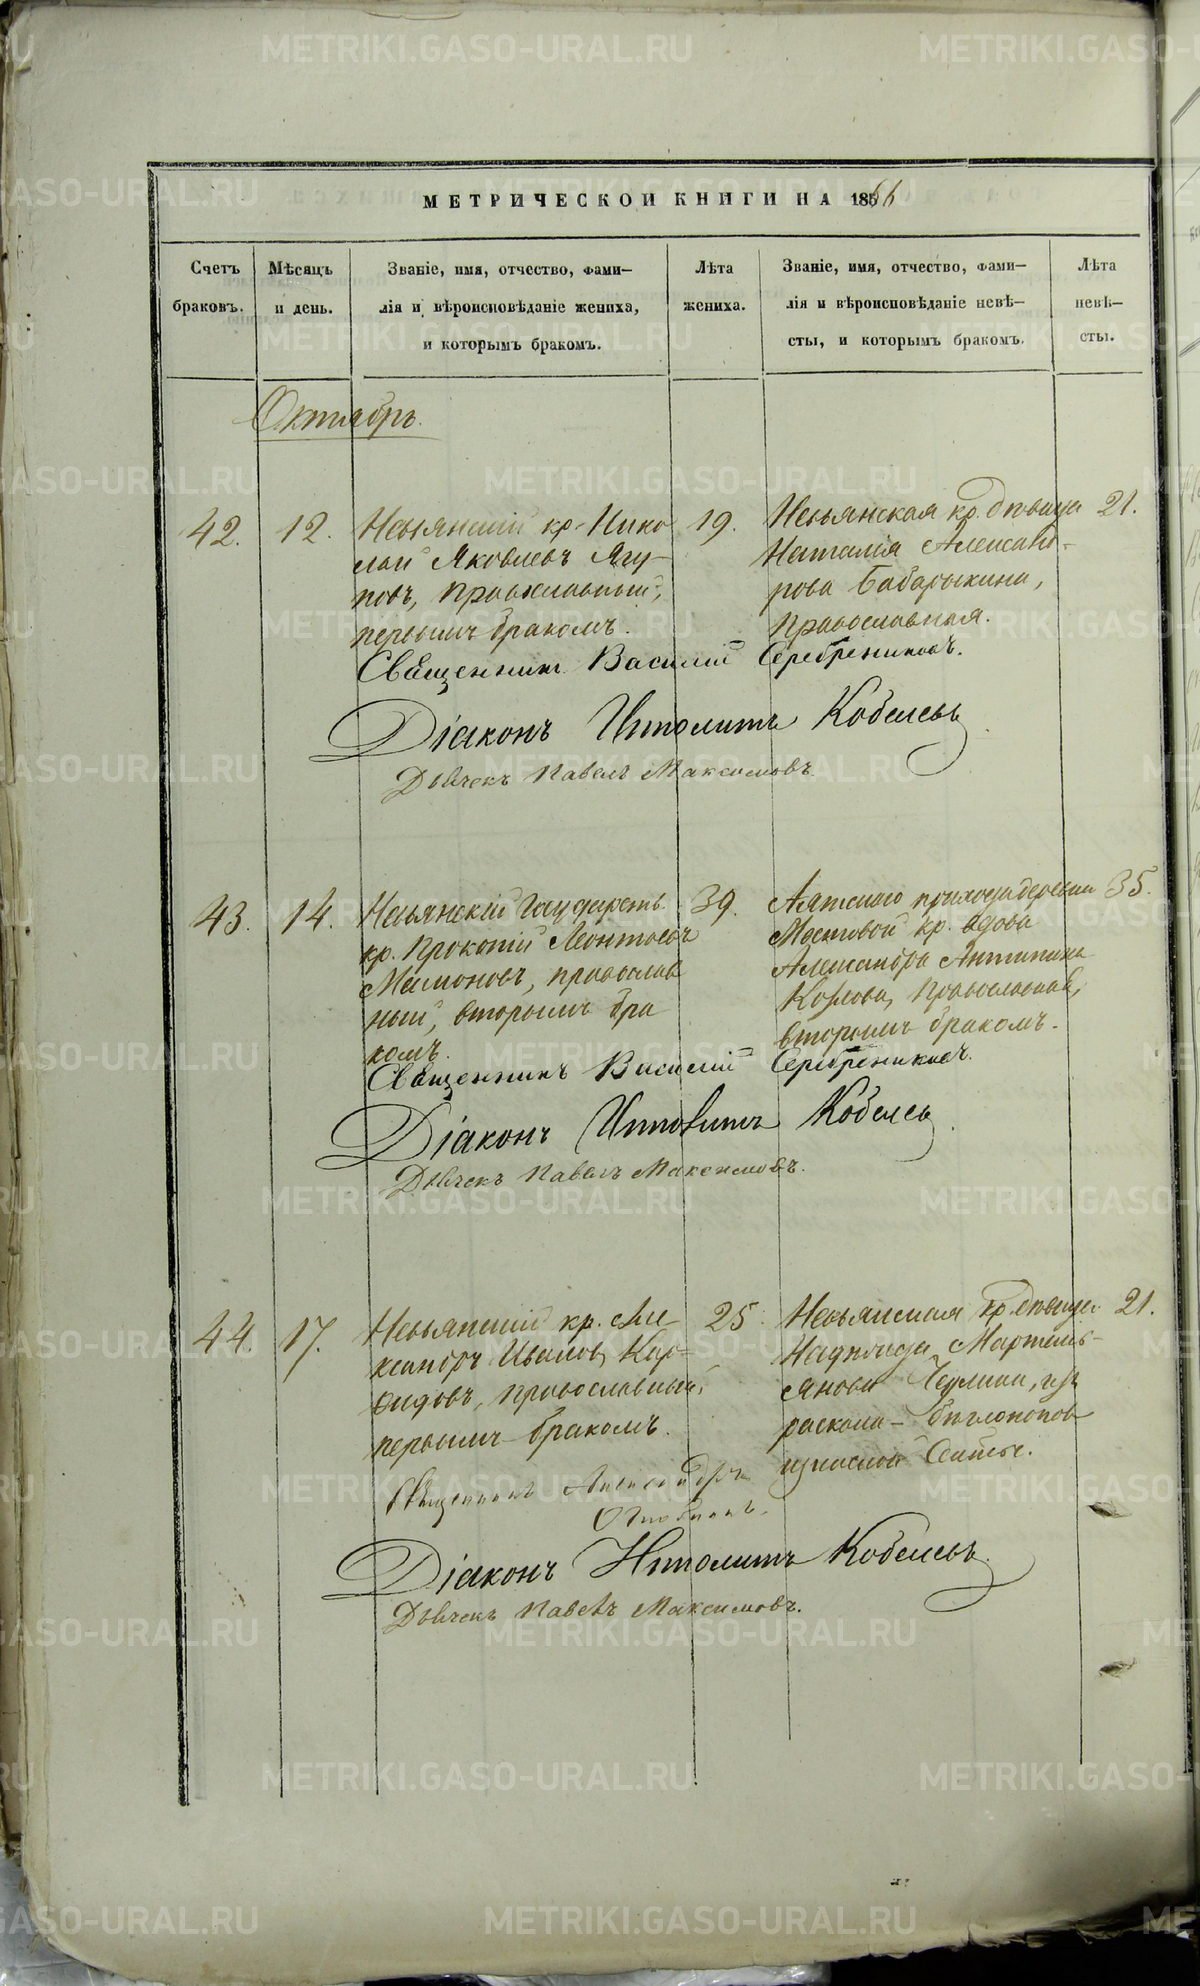 МЕТРИЧЕСКОЙ КНИГИ НА 1866
Счетъ браковъ.
Мѣсяцъ и день.
Званіе, имя, отчество, фами-
лія и вѣроисповѣданіе жениха,
и которымъ бракомъ.
Лѣта жениха.
Званіе, имя, отчество, фами-
лія и вѣроисповѣданіе невѣ-
сты, и которымъ бракомъ.
Лѣта невѣ-
сты.
Октябрь.
42. 12.
Невьянскій кр. Нико
лай Яковлевъ Ягу-
повъ, православный,
первымъ бракомъ.
19.
Невьянская кр. дѣвица
Наталія Александ-
рова Бабарыкина,
православная.
21.
Священникъ Василій Серебрениковъ.
Діаконъ Ипполитъ Кобелевъ
Дьячекъ Павелъ Максимовъ.
43. 14.
Невьянскій Государств.
кр. Прокопій Леонтьевъ
Мамоновъ, православ
ный, вторымъ бра
комъ.
39.
Аятскаго прихода деревни
Мостовой кр. вдова
Александра Антипина
Козлова, православная,
вторымъ бракомъ.
35.
Священникъ Василій Серебрениковъ.
Діаконъ Ипполитъ Кобелевъ
Дьячекъ Павелъ Максимовъ.
44. 17.
Невьянскій кр. Але-
ксандръ Ивановъ Кар-
православный,
первымъ бракомъ.
25.
Невьянская кр. дѣвица
Надежда Мартемь-
янова изъ
раскола бѣглопопов
щинской секты.
21.
Священникъ Александръ
Діаконъ Ипполитъ Кобелевъ.
Дьячекъ Павелъ Максимовъ.
METRIKI.GASO-URAL.RU